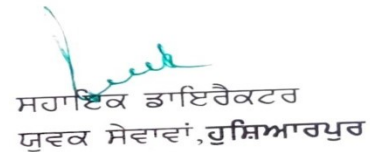 ਸਹਾਇਕ ਡਾਇਰੈਕਟਰ
ਯੁਵਕ ਸੇਵਾਵਾਂ,ਹੁਸ਼ਿਆਰਪੁਰ